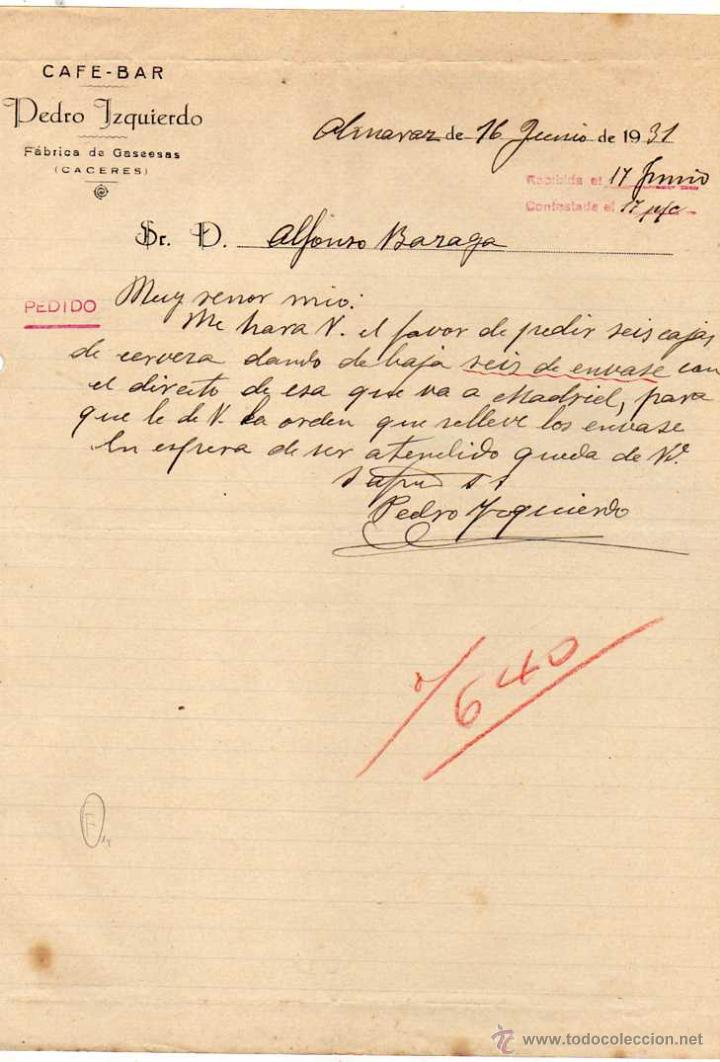 CAFE-BAR
Pedro Izquierdo
Fábrica de Gaseosas
(CACERES)
Almaraz de 16 Junio de 1931
Recibida el 17 Junio
Contestada el 17
Sr. D. Alfonso Bazaga
PEDIDO
Muy senor mio:
Me hara V. el favor de pedir seis cajas
de cerveza dando de baja seis de envase con
el directo de esa que va a Madriel, para
que le de V. la orden que selleve los envase
En espera de ser atendido queda de Vd.
Pedro Yzquierdo
640
F
www.todocoleccion.net